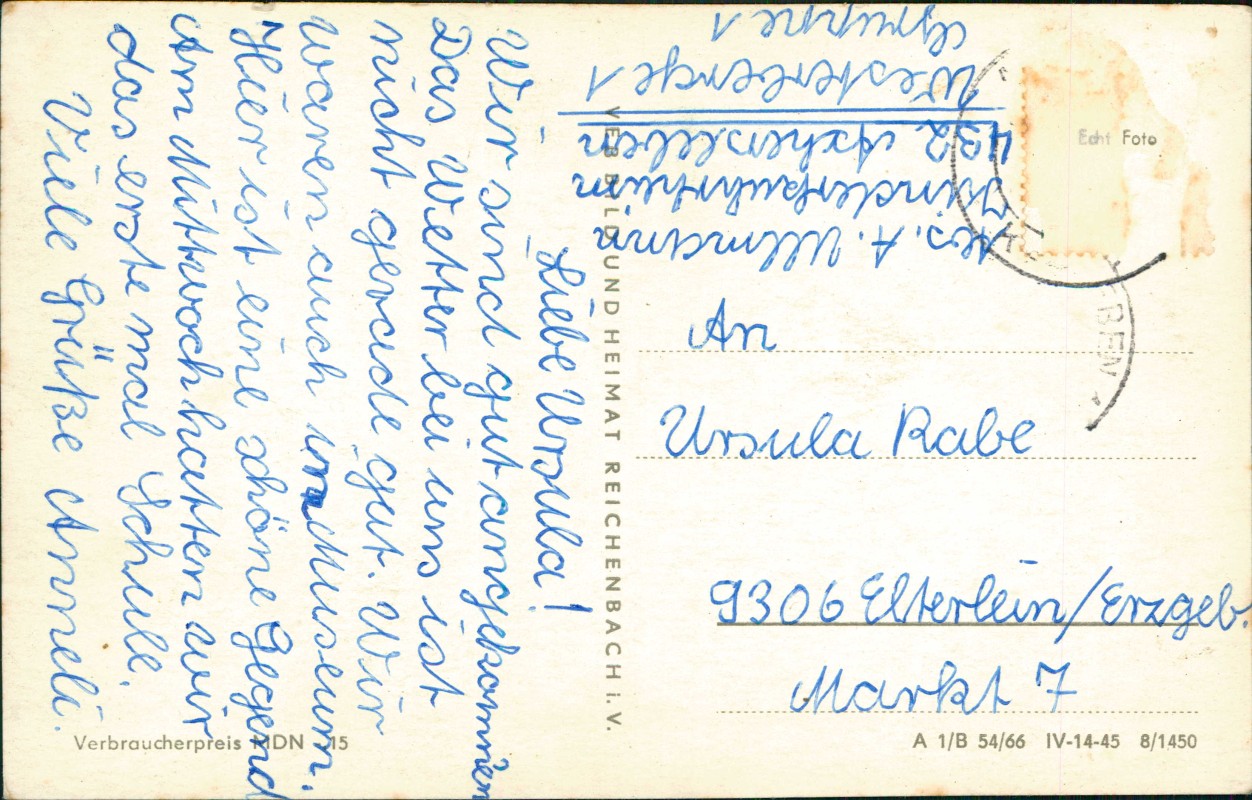 Liebe Ursula!
Wir sind gut angekommen
Das Wetter bei uns ist
nicht gerade gut. Wir
waren auch im Museum.
Hier ist eine schöne Gegend
Am Mittwoch hatten wir
das erste mal Schule.
Viele Grüße Anneli.
Abs. A. Ullmann
Kinderkurheim
432 Aschersleben
Westerberge 1
Gruppe 1
An
Ursula Rabe
9306 Elterlein/Erzgeb.
Markt 7
Echt Foto
VEB BILD UND HEIMAT REICHENBACH i. V.
Verbraucherpreis MDN 15
A 1/B 54/66 IV-14-45 8/1450
BEN